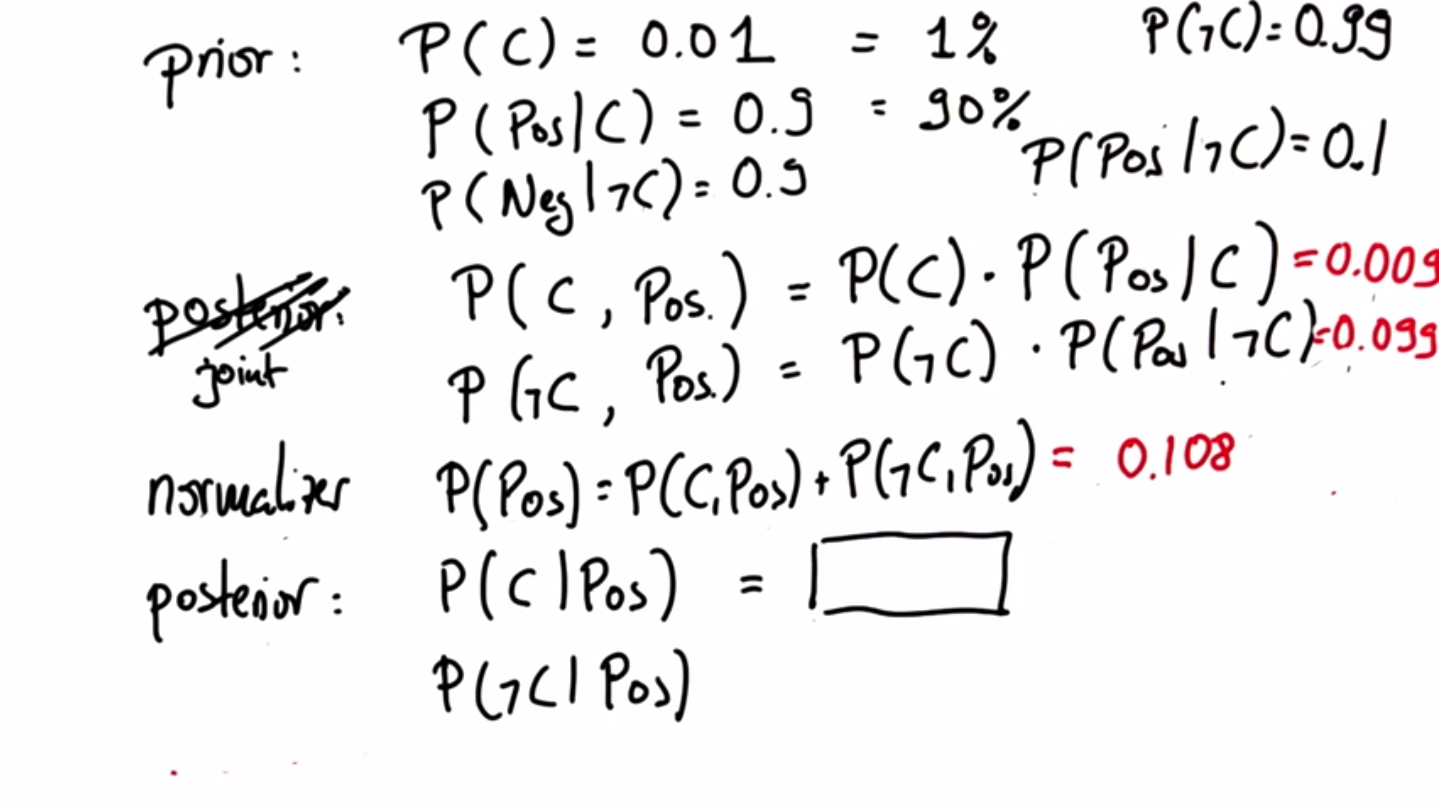 prior: P(C) = 0.01 = 1% P(¬C)=0.99
P(Pos|C) = 0.9 = 90%
P(Pos|¬C)=0.1
P(Neg|¬C)=0.9
posterior:
joint
P(C, Pos.) = P(C)·P(Pos|C)=0.009
P(¬C, Pos.) = P(¬C)·P(Pos|¬C)=0.099
normalizer P(Pos)=P(C,Pos)+P(¬C,Pos)= 0.108
posterior: P(C|Pos) =
P(¬C|Pos)